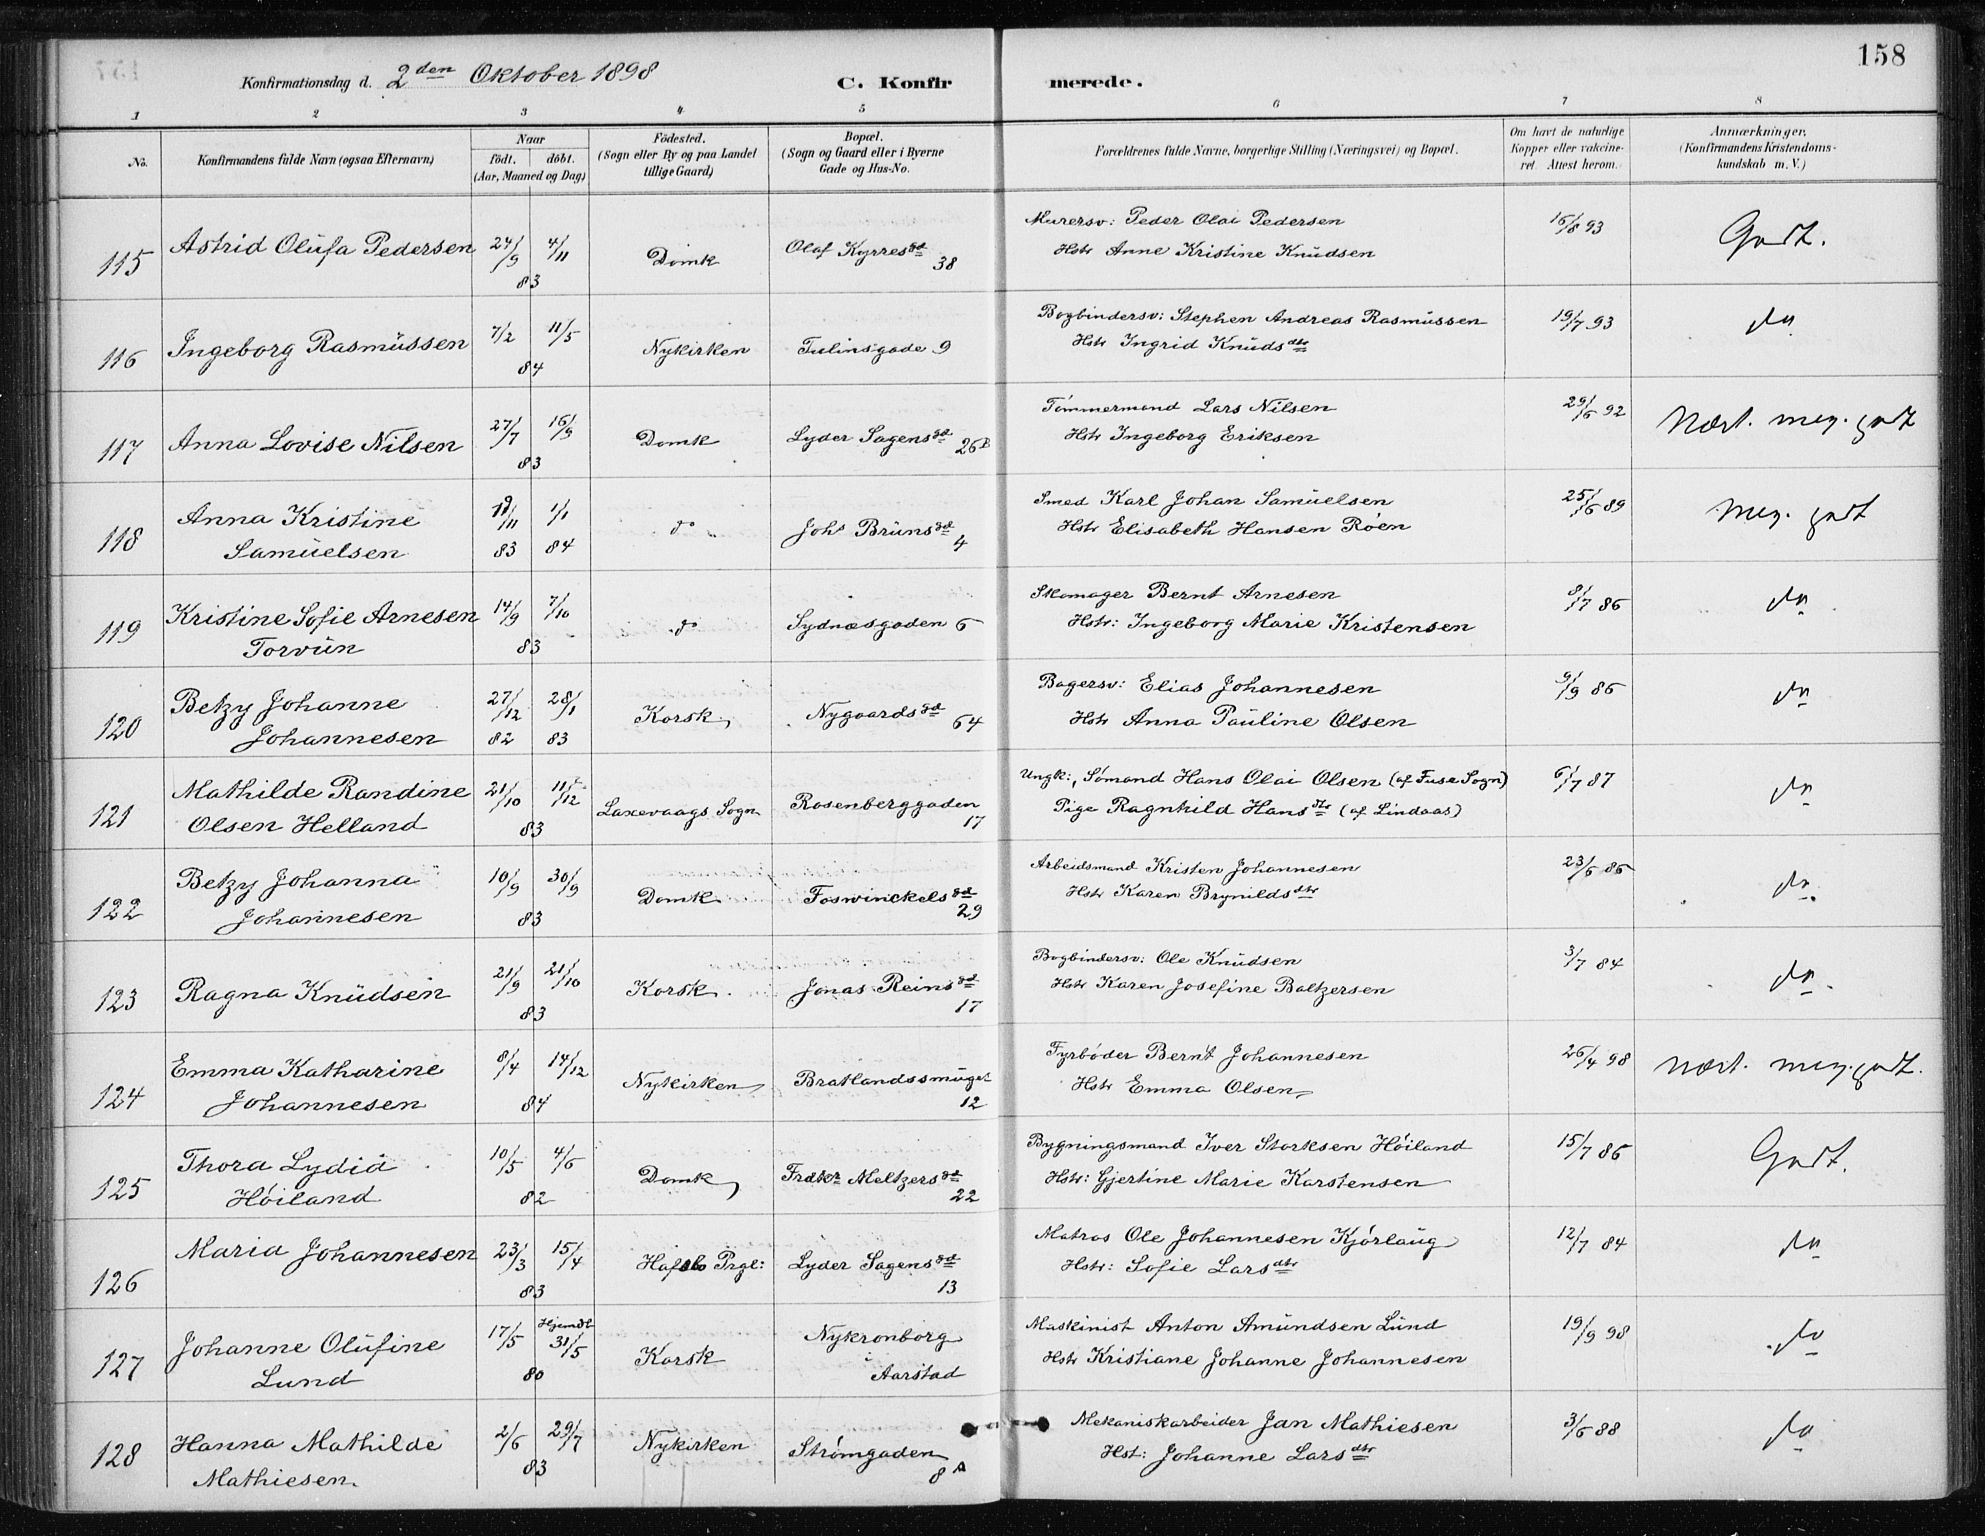 158
Konfirmationsdag d. 2den Oktober 1898
C. Konfirmerede.
1 2 3 4 5 6 7 8
No.
Konfirmandens fulde Navn (ogsaa Efternavn)
Naar
födt. döbt.
(Aar, Maaned og Dag)
Födested.
(Sogn eller By og paa Landet
tillige Gaard)
Bopæl.
(Sogn og Gaard eller i Byerne
Gade og Hus-No.
Forældrenes fulde Navne, borgerlige Stilling (Næringsvei) og Bopæl.
Om havt de naturlige
Kopper eller vakcine-
ret. Attest herom.
Anmærkninger.
(Konfirmandens Kristendoms-
kundskab m. V.)
115 Astrid Olufa Pedersen 24/9 4/11 83 Domk Olaf Kyrresgd 38
Murersv: Peder Olai Pedersen 16/8 93 Godt.
Hstr Anne Kristine Knudsen
116 Ingeborg Rasmussen 7/2 11/5 84 Nykirken Tulinsgade 9
Bogbindersv: Stephen Andreas Rasmussen 19/7 93 do
Hstr Ingrid Knudsdtr
117 Anna Lovise Nilsen 27/7 16/9 83 Domk Lyder Sagensgd 26B
Tömmermand Lars Nilsen 29/6 92 Næst. meg. godt
Hstr Ingeborg Eriksen
118 Anna Kristine
Samuelsen 11 83 1/1 84 do Johs Brunsgd 4
Smed Karl Johan Samuelsen 25/6 89 Meg. godt
Hstr Elisabeth Hansen Röen
119 Kristine Sofie Arnesen
Torvun 14/9 7/10 83 do Sydnæsgaden 6
Skomager Bernt Arnesen 8/7 86 do
Hstr: Ingeborg Marie Kristensen
120 Betzy Johanne
Johannesen 27/12 82 28/1 83 Korsk Nygaardsgd 64
Bagersv: Elias Johannesen 9/9 86 do
Hstr Anna Pauline Olsen
121 Mathilde Randine
Olsen Helland 21/10 11/12 83 Laxevaags Sogn Rosenberggaden 17
Ungk:, Sömand Hans Olai Olsen (af Fuse Sogn) 6/7 87 do
Pige Ragnhild Hansdtr (af Lindaas)
122 Betzy Johanna
Johannesen 10/9 30/9 83 Domk Foswinckelsgd 29
Arbeidsmand Kristen Johannesen 23/6 86 do
Hstr Karen Brynildsdtr
123 Ragna Knudsen 21/9 21/10 83 Korsk Jonas Reinsgd 17
Bogbindersv: Ole Knudsen 3/7 84 do
Hstr Karen Josefine Baltzersen
124 Emma Katharine
Johannesen 8/4 14/12 84 Nykirken Bratlandssmuget 12
Fyrböder Bernt Johannesen 26/4 98 Næst. meg. godt.
Hstr Emma Olsen
125 Thora Lydia
Höiland 10/5 4/6 82 Domk Fredkr Meltzersgd 22
Bygningsmand Iver Storksen Höiland 15/7 86 Godt.
Hstr: Gjertine Marie Karstensen
126 Maria Johannesen 23/3 15/4 83 Hafslo Prgl: Lyder Sagensgd 13
Matros Ole Johannesen Kjörlaug 12/7 84 do
Hstr: Sofie Larsdtr
127 Johanne Olufine
Lund 17/5 Hjemdt 31/5 80 Korsk Nykronborg
i
Aarstad
Maskinist Anton Amundsen Lund 19/9 98 do
Hstr Kristiane Johanne Johannesen
128 Hanna Mathilde
Mathiesen. 2/6 29/7 83 Nykirken Strömgaden 8A
Mekaniskarbeider Jan Mathiesen 3/6 88 do
Hst: Johanne Larsdtr